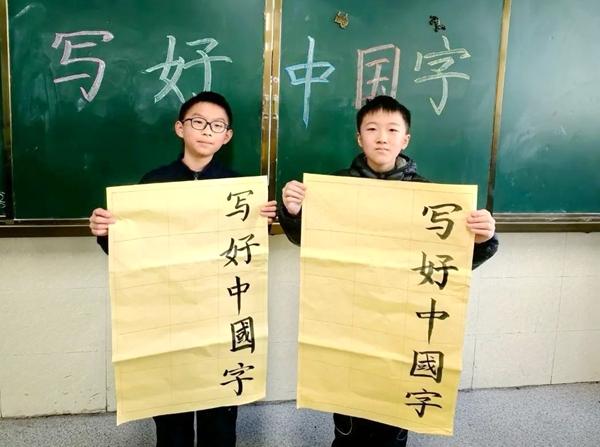 写好中国字
写好中國字
写好中國字